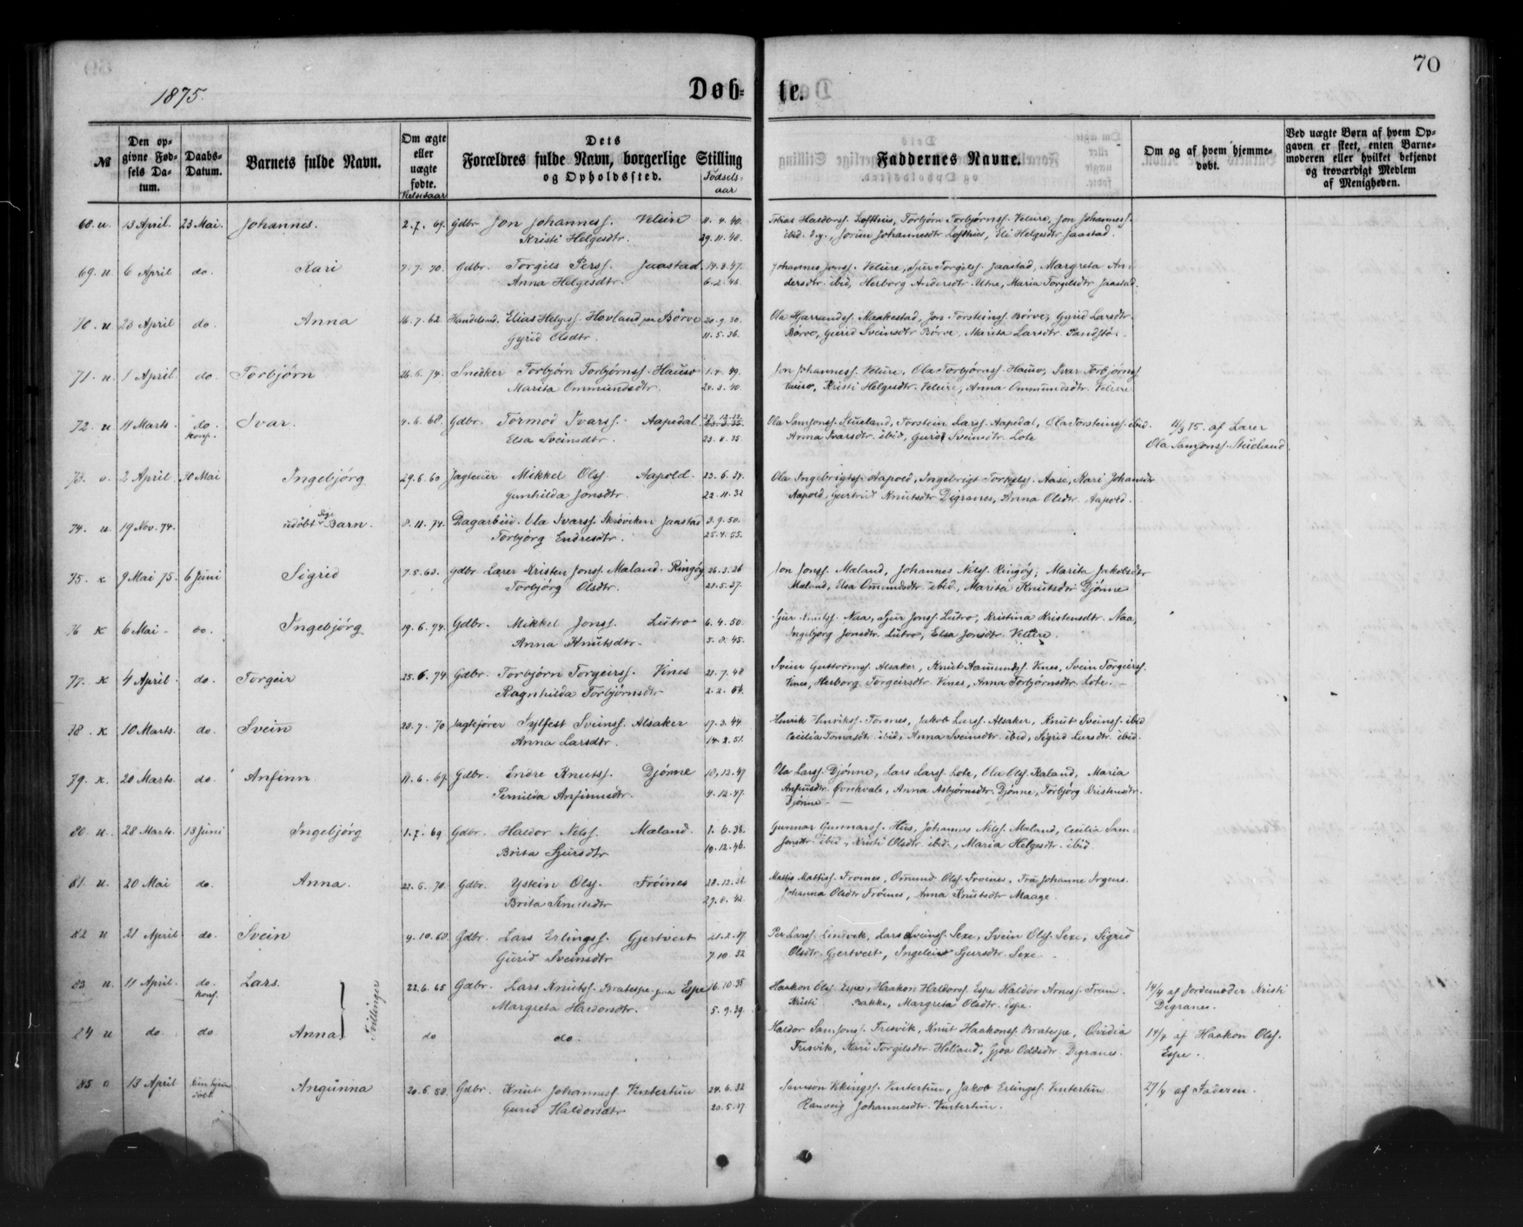 70
1875.
Døb-
te.
№
Den op-
givne Fød-
sels Da-
tum.
Daabs-
Datum.
Barnets fulde Navn.
Om ægte
eller
uægte
fødte.
Dets
Forældres fulde Navn, borgerlige Stilling
og Opholdssted.
Fødsels-
aar
Faddernes Navne.
Om og af hvem hjemme-
døbt.
Ved uægte Børn af hvem Op-
gaven er skeet, enten Barne-
moderen eller hvilket bekjendt
og troværdigt Medlem
af Menigheden.
68. u. 13 April. 23 Mai. Johannes. 2.7.69. Gdbr. Jon Johanness. Velure 11.4.40.
Kristi Helgesdtr. 29.11.40.
Tobias Haldorss. Lofthus, Torbjørn Torbjørnss. Velure, Jon Johanness.
ibid. Jorun Johannesdtr Lofthus, Eli Helgesdtr Jaastad.
69. u 6 April do. Kari 7.7.70. Gdbr. Torgils Perss. Jaastad.
Anna Helgesdtr.
Johannes Jonss. Velure, Sjur Torgilss. Jaastad, Margreta An-
dersdtr. ibid, Herborg Andersdtr. Utne, Maria Torgilsdtr Jaastad.
70. u 23 April do. Anna 16.7.62 Elias Helgess. Hovland Børve 20.9.30.
Gyrid Olsdtr. 11.5.36.
Ola Maakestad, Jon Torsteinss. Børve, Gyrid Larsdtr.
Børve, Gurid Sveinsdtr Børve, Marita Larsdtr.
71. u. 1 April do. Torbjørn 26.6.74. Snedker Torbjørn Torbjørnss. Hauso 1.4.49.
Marita Ommundsdtr.
Jon Johanness. Velure, Ola Torbjørnss. Hauso, Torbjørnss
Hauso, Kristi Helgesdtr. Velure, Anna Ommundsdtr. Velure
72. u 11 Marts. do. Ivar. 4.6.68. Gdbr. Tormod Ivarss. Aapedal
konf.
Elsa Sveinsdtr.
Ola Samsonss. Stueland, Torstein Larss. Aapedal, Ola Torsteinss. ibid.
Anna Ivarsdtr. ibid, Gurid Sveinsdtr Lote
75. af Lærer
Ola Samsonss. Stueland
73. 2 April 30 Mai Ingebjørg 29.6.60 Mikkel Olss. Aapold. 23.6.37.
Gunhilda Jonsdtr. 22.11.32
Ola Ingebrigtss. Aapold, Ingebrigt Torkelss. Aase, Kari Johansdtr
Aapold, Gertrud Knutsdtr Digranes, Anna Olsdtr. Aapold.
74. u. 19 Nov. 74. udøbt Barn. Dagarbeid. Ola Ivarss. Jaastad 3.9.50.
Torbjørg Endresdtr. 25.4.55.
75. k 9 Mai 75. 6 Juni Sigrid 7.5.63. Gdbr Lærer Kristen Jonss. Mæland. Ringøy 26.3.36
Torbjørg Olsdtr. 21.5.37.
Jon Jonss. Mæland, Johannes Nilss. Ringøy, Marita Jakobsdtr
Mæland, Elsa Omundsdtr. ibid, Marita Knutsdtr Djønne
76 k 6 Mai do. Ingebjørg 19.6.74. Gdbr. Mikkel Jonss. Lutro 6.4.50.
Anna Knutsdtr.
Sjur Naa, Sjur Jonss. Lutro, Kristina Kristensdtr. Naa,
Ingebjørg Jonsdtr. Lutro, Elsa Jonsdtr. Velure.
77. k 4 April. do. Torgeir 25.6.74 Gdbr. Torbjørn Torgeirss. Vines 21.7.48
Ragnhilda Torbjørnsdtr
Svein Guttormss. Alsaker, Knut Aamundss. Vines, Svein Torgeirss.
Vines, Herborg Torgeirsdtr. Vines, Anna Torbjørnsdtr. Lote.
78. k 10 Marts. do. Svein 20.7.70 Sylfest Sveinss. Alsaker 17.3.44
Anna Larsdtr. 14.8.51.
Henrik Henrikss. Torenes, Jakob Larss. Alsaker, Knut Sveinss. ibid
Cecilia Tomasdtr. ibid, Anna Sveinsdtr ibid, Sigrid Larsdtr. ibid.
79. k. 20 Marts. do. Anfinn 11.6.69. Gdbr. Endre Knutss. Djønne 10.12.47
Pernilia Anfinnsdtr. 4.12.47.
Ola Larss. Djønne, Lars Larss. Lote, Ola Olss. Raland, Maria
Anfinsdtr. Qvehvale, Anna Asbjørnsdtr. Djønne, Torbjørg Kristensdtr.
Djønne
80. u. 28 Marts. 13 Juni Ingebjørg 1.7.69 Gdbr. Haldor Nilss. Mæland.
Brita Sjursdtr 19.12.46.
Gunnar Gunnarss. Hus, Johannes Nilss. Mæland, Cecilia Sam-
sonsdtr. ibid, Kristi Olsdtr. ibid, Maria Helgesdtr. ibid.
81. u. 20 Mai do. Anna. 22.6.70. Gdbr. Ystein Olss. Frøines
Brita Knutsdtr
Mattis Mattiss. Frøines, Omund Olss. Frøines, Fru Johanne Irgens.
Johanna Olsdtr Frøines, Anna Knutsdtr Maage.
82 u 21 April do. Svein 4.10.60. Gdbr. Lars Erlingss. Gjertveit
Gurid Sveinsdtr 7.10.32
Per Larss. Lindvik, Lars Sveinss. Sexe, Svein Olss. Sexe, Sigrid
Olsdtr. Gjertveit, Ingeleiv Sjursdtr. Sexe
83 u. 11 April. do. Lars. 22.6.65 Gdbr. Lars Knutss. Bratespe Espe 16.10.35
konf.
Tvillinger
Margreta Haldorsdtr. 5.9.39.
Haakon Olss. Espe, Haakon Haldorss. Espe Haldor Arness.
Kristi Bakke, Margreta Olsdtr. Espe.
14/4 af Jordemoder Kristi
Digranes.
84 u do. do Anna do do.
Haldor Samsonss. Tresvik, Knut Haakonss. Bratespe,
Tresvik, Kari Torgilsdtr. Helland, Gjoa Oddsdtr. Digranes.
14/4 af Haakon Olss.
Espe.
85 13 April Angunna 20.6.58. Gdbr. Knut Johanness Vintertun 24.6.32
døbt
Gurid Haldorsdtr 20.5.37
Samson Vikingss. Vintertun, Jakob Erlingss. Vintertun
Ranveig Johannesdtr. Vintertun.
27/4 af Faderen.